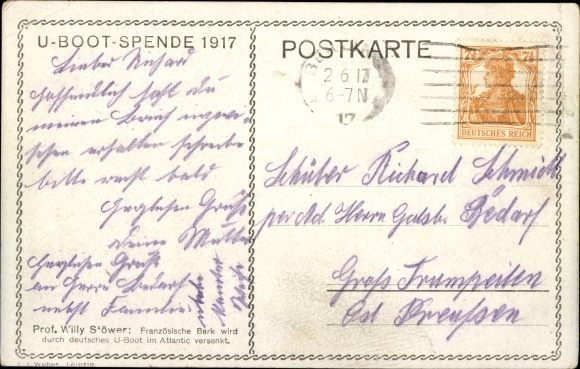 U-BOOT-SPENDE 1917
POSTKARTE
Lieber Richard
hoffendlich hast du
meinen Brief inzwi-
schen erhalten schreibe
bitte recht bald
Herzlichen Gruß
deine Mutter
Herzlichen Gruß
an Herrn Bedarf
nebst Familie
2 6 17
6-7N
17
7½ 7½
DEUTSCHES REICH
Schüler Richard Schmidt
per Ad. Herrn Gutsb. Bedarf
Groß Trumpeiten
Ost Preußen
Prof. Willy Stöwer: Französische Bark wird
durch deutsches U-Boot im Atlantic versenkt.
J. J. Weber, Leipzig